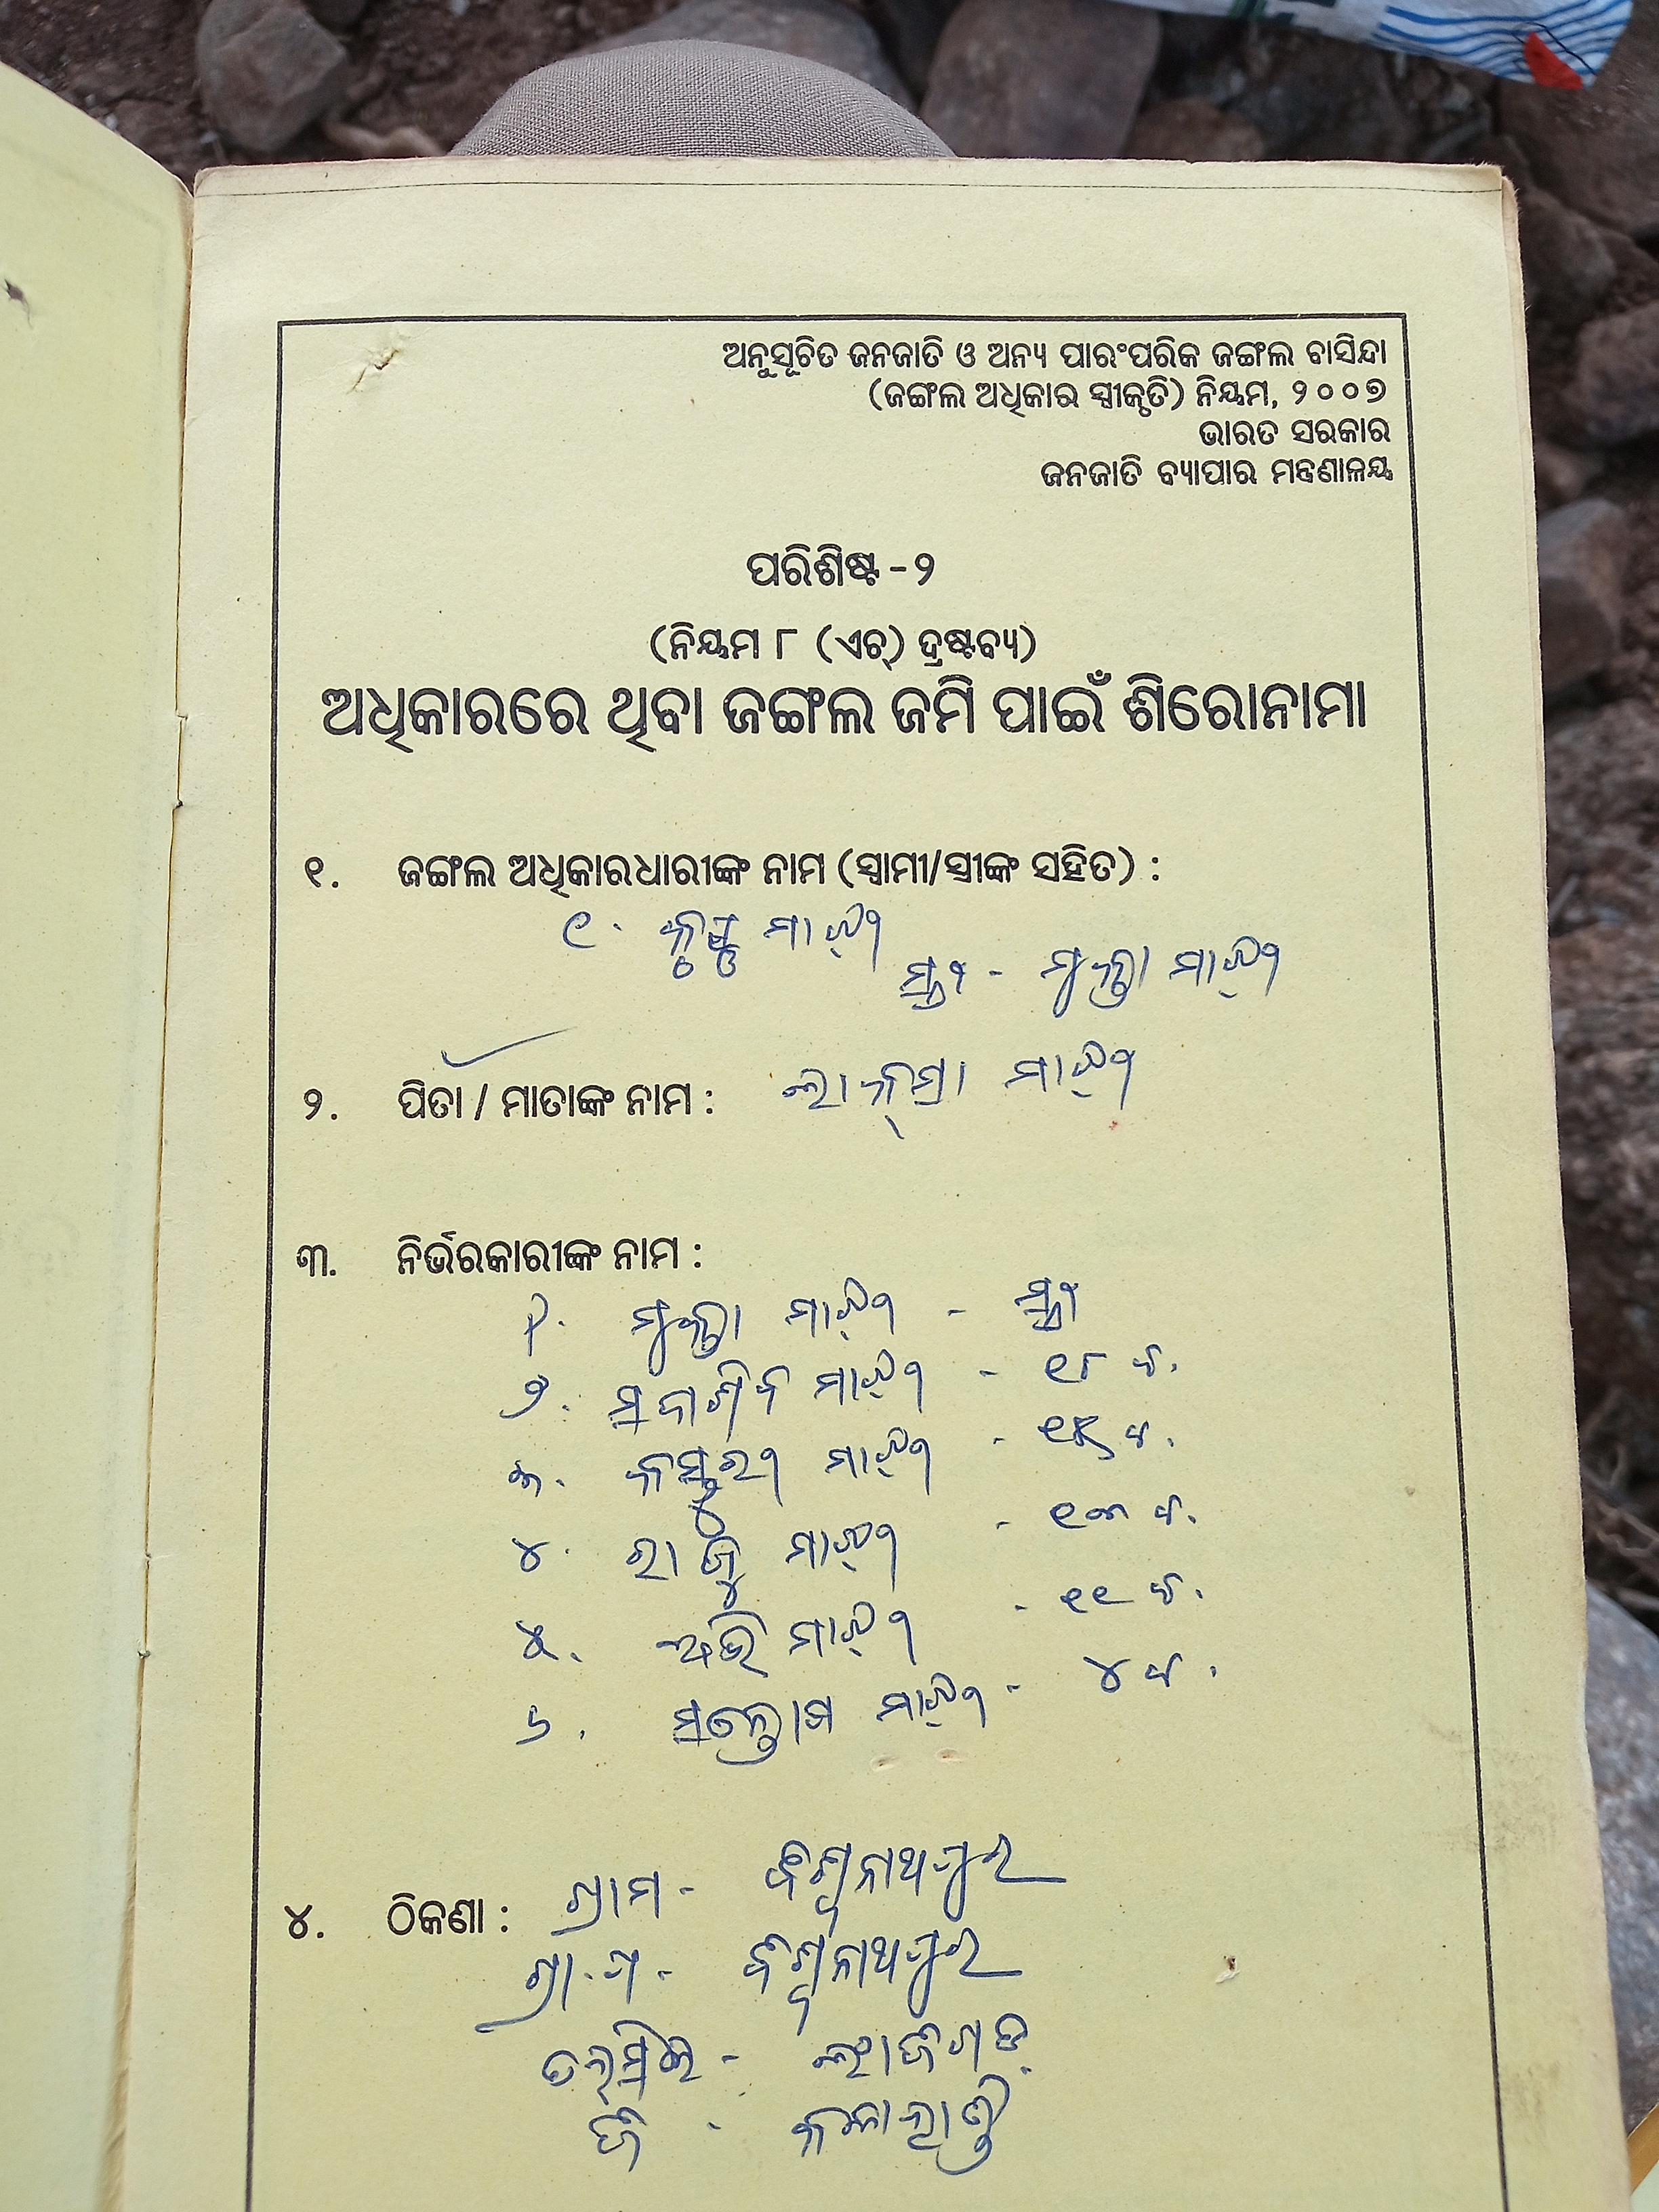 ଅନୁସୂଚିତ ଜନଜାତି ଓ ଅନ୍ୟ ପାରଂପରିକ ଜଙ୍ଗଲ ବାସିନ୍ଦା
(ଜଙ୍ଗଲ ଅଧିକାର ସ୍ୱୀକୃତି) ନିୟମ, ୨୦୦୭
ଭାରତ ସରକାର
ଜନଜାତି ବ୍ୟାପାର ମନ୍ତ୍ରଣାଳୟ
ପରିଶିଷ୍ଟ - ୨
(ନିୟମ ୮ (ଏଚ୍) ଦ୍ରଷ୍ଟବ୍ୟ)
ଅଧିକାରରେ ଥିବା ଜଙ୍ଗଲ ଜମି ପାଇଁ ଶିରୋନାମା
୧. ଜଙ୍ଗଲ ଅଧିକାରଧାରୀଙ୍କ ନାମ (ସ୍ୱାମୀ/ସ୍ତ୍ରୀଙ୍କ ସହିତ) :
୧. କୃଷ୍ଣ ମାଝୀ
ସ୍ତ୍ରୀ - ମୁକ୍ତା ମାଝୀ
୨. ପିତା / ମାତାଙ୍କ ନାମ : ମାଝୀ
୩. ନିର୍ଭରକାରୀଙ୍କ ନାମ :
୧. ମୁକ୍ତା ମାଝୀ - ସ୍ତ୍ରୀ
୨. ସଦାଶିବ ମାଝୀ - ୧୮ ବ.
୩. କସ୍ତୁରୀ ମାଝୀ - ୧୫ ବ.
୪. ରାଜୁ ମାଝୀ - ୧୩ ବ.
୫. ଅଭି ମାଝୀ - ୧୧ ବ.
୬. ସନ୍ତୋଷ ମାଝୀ - ୪ ବ.
୪. ଠିକଣା : ଗ୍ରାମ - ବିଶ୍ୱନାଥପୁର
ଗ୍ରା.ପ - ବିଶ୍ୱନାଥପୁର
ତହସିଲ - ଲାଂଜିଗଡ଼
ଜି - କଳାହାଣ୍ଡି